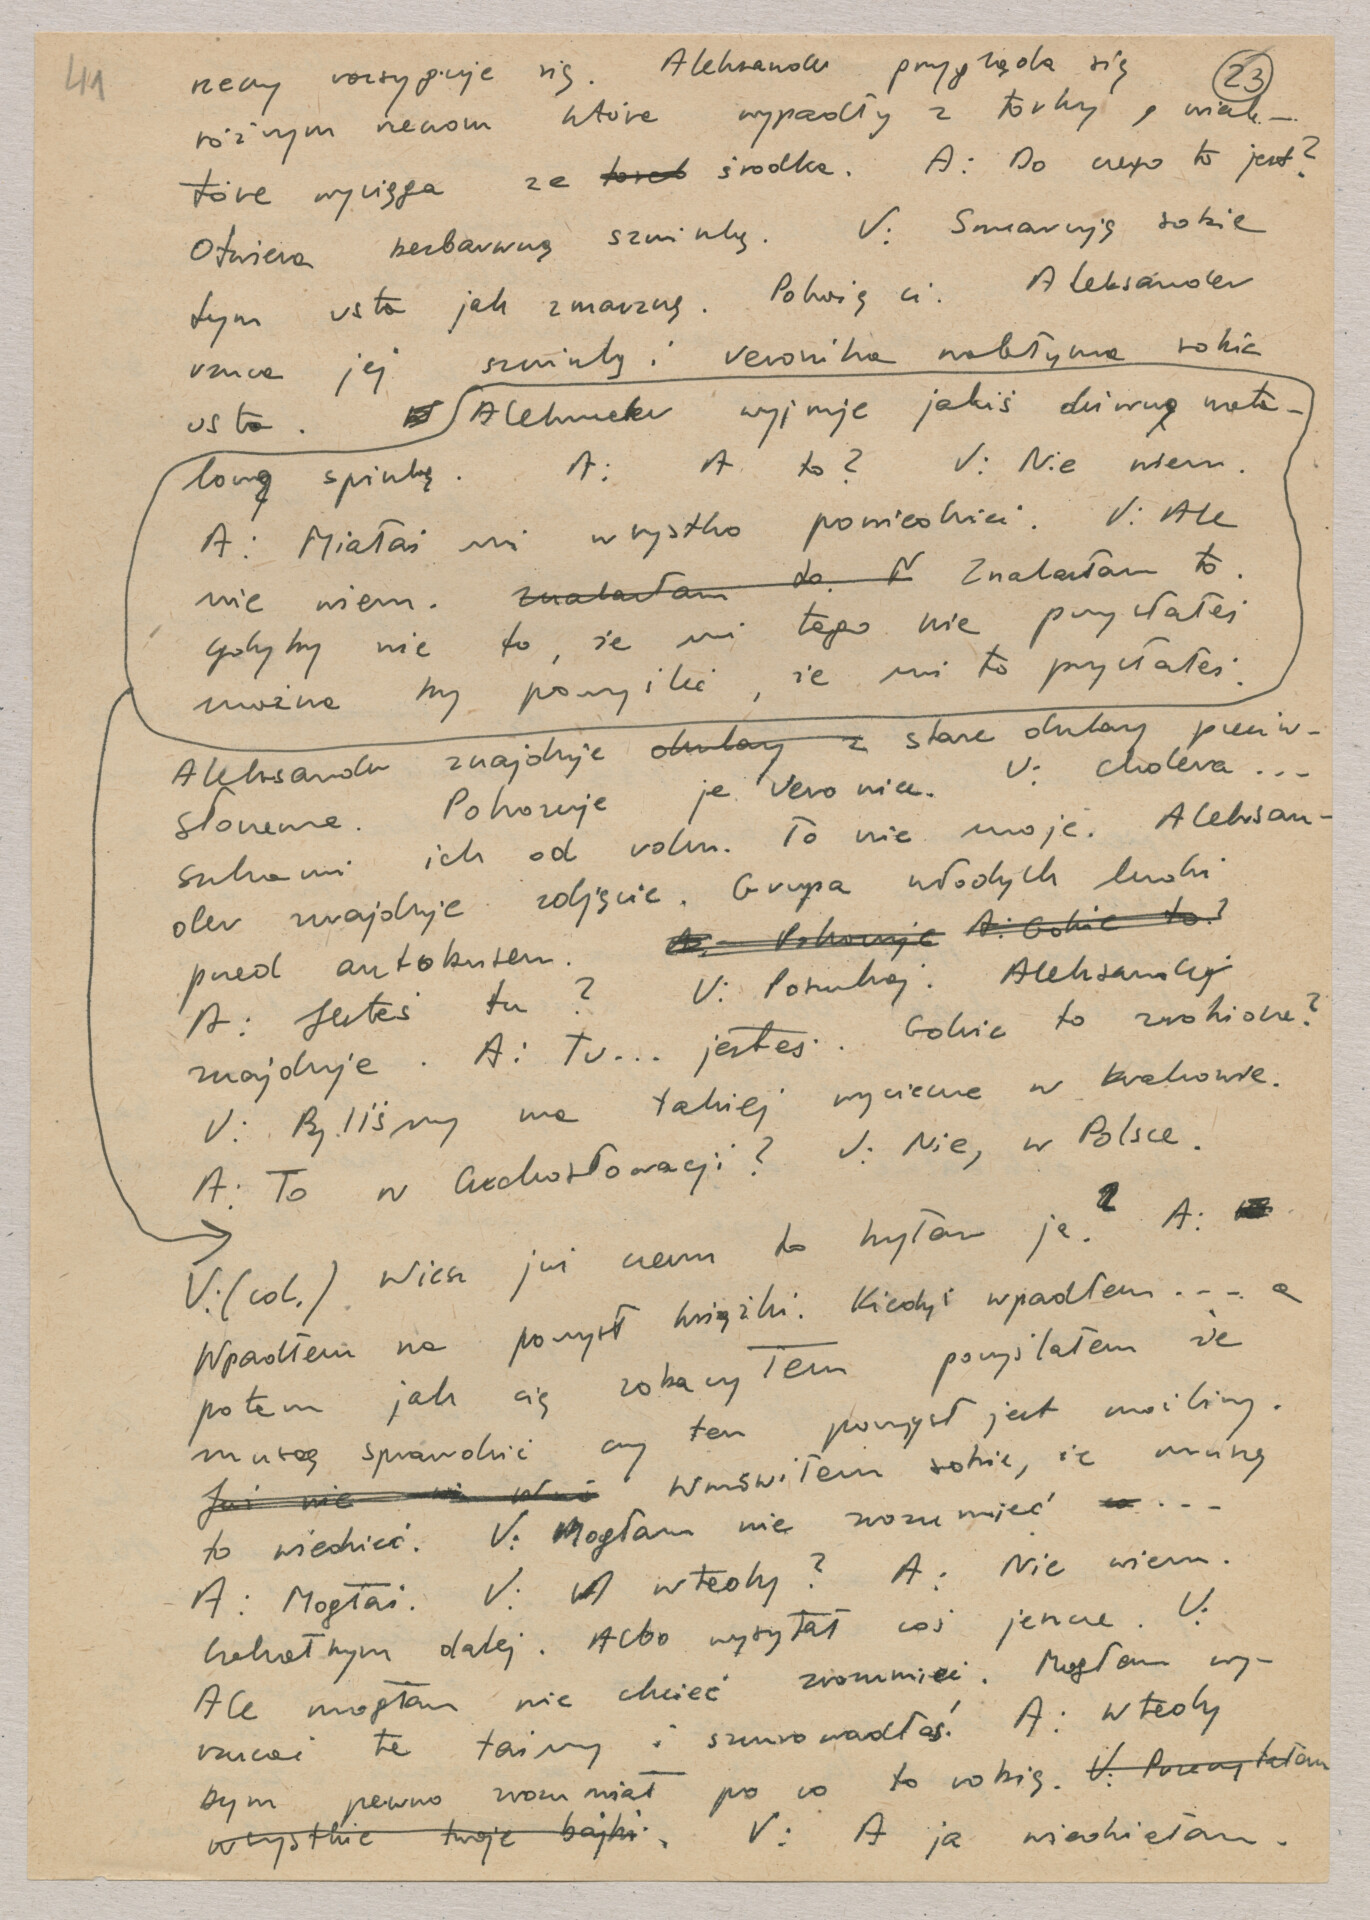 41
23
rzeczy rozsypuje się. Aleksander przygląda się
różnym rzeczom które wypadły z torby, niek-
tóre wyciąga ze toreb środka. A: Do czego to jest?
Otwiera bezbarwną szminkę. V: Smaruję sobie
tym usta jak zmarzną. Pokażę ci. Aleksander
rzuca jej szminkę i Veronika nabłyszcza sobie
usta. Aleksander wyjmuje jakiś dziwną meta-
lową spinkę. A: A to? V: Nie wiem.
A: Miałaś mi wszystko powiedzieć. V: Ale
nie wiem. Znalazłam to. N Znalazłam to.
Gdyby nie to, że mi tego nie przysłałeś
można by pomyśleć, że mi to przysłałeś.
Aleksander znajduje okulary z stare okulary przeciw-
słoneczne. Pokazuje je Veronice. V: Cholera ...
szukam ich od roku. To nie moje. Aleksan-
der znajduje zdjęcie. Grupa młodych ludzi
przed autobusem. A: Pokazuje A: Gdzie to?
A: Jesteś tu? V: Poszukaj. Aleksander
znajduje. A: Tu... jesteś. Gdzie to zrobione?
V: Byliśmy na takiej wycieczce w Krakowie.
A: To w Czechosłowacji? V: Nie, w Polsce.
V: (cd.) Wiesz już czemu to byłam ja? A:
Wpadłem na pomysł książki. Kiedyś wpadłem .... a
potem jak cię zobaczyłem pomyślałem że
muszę sprawdzić czy ten pomysł jest możliwy.
Już nie Wmówiłem sobie, że muszę
to wiedzieć. V: Mogłam nie zrozumieć ...
A: Mogłaś. V: I wtedy? A: Nie wiem.
Czekałbym dalej. Albo wysyłał coś jeszcze. V:
Ale mogłam nie chcieć zrozumieć. Mogłam wy-
rzucić te taśmy i sznurowadła! A: Wtedy
bym pewno zrozumiał po co to robię. V: Przeczytałam
wszystkie twoje bajki. V: A ja wiedziałam.